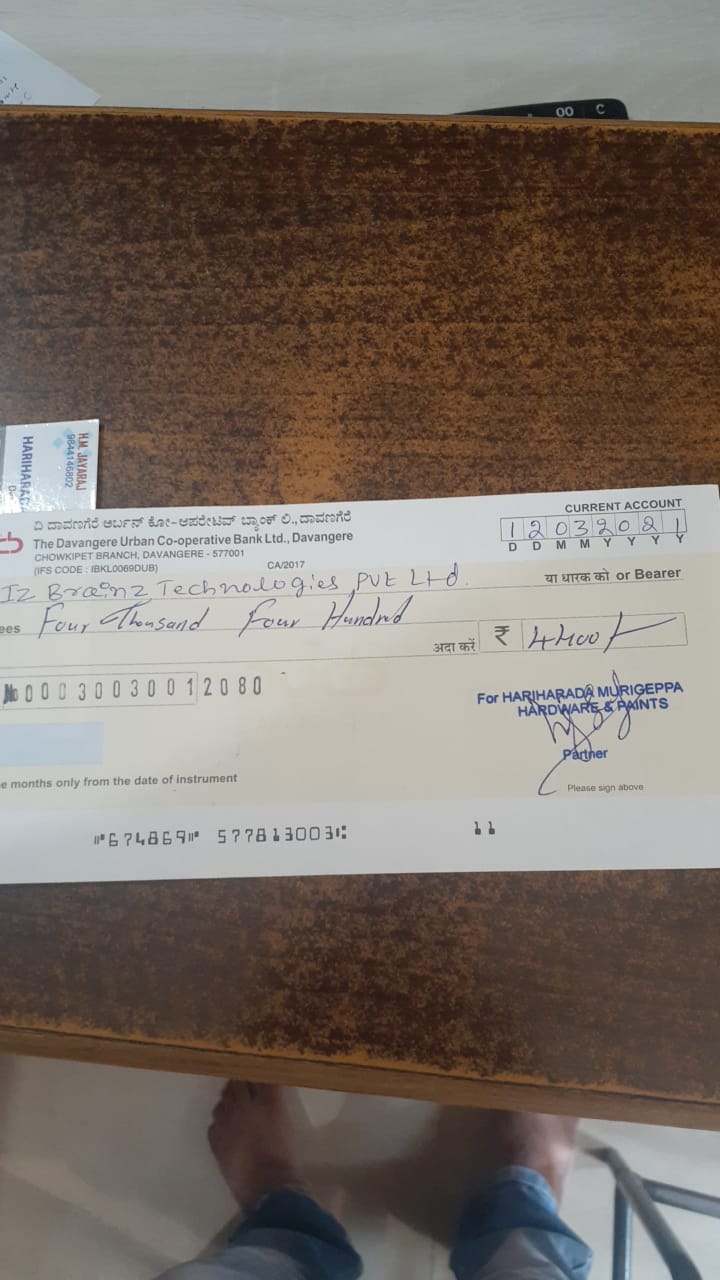 00 C
H.M. JAYARAJ
9844146802
HARIHARAD
ದಿ ದಾವಣಗೆರೆ ಅರ್ಬನ್ ಕೋ-ಆಪರೇಟಿವ್ ಬ್ಯಾಂಕ್ ಲಿ., ದಾವಣಗೆರೆ
The Davangere Urban Co-operative Bank Ltd., Davangere
CHOWKIPET BRANCH, DAVANGERE - 577001
(IFS CODE : IBKL0069DUB) CA/2017
CURRENT ACCOUNT
1 2 0 3 2 0 2 1
D D M M Y Y Y Y
Iz Brainz Technologies PVt Ltd. या धारक को or Bearer
ees Four Thousand Four Hundred
अदा करें ₹ 4400/-
No 00030030012080
For HARIHARADA MURIGEPPA
HARDWARE & PAINTS
Partner
Please sign above
e months only from the date of instrument
⑈674869⑈ 577813003⑆ 11